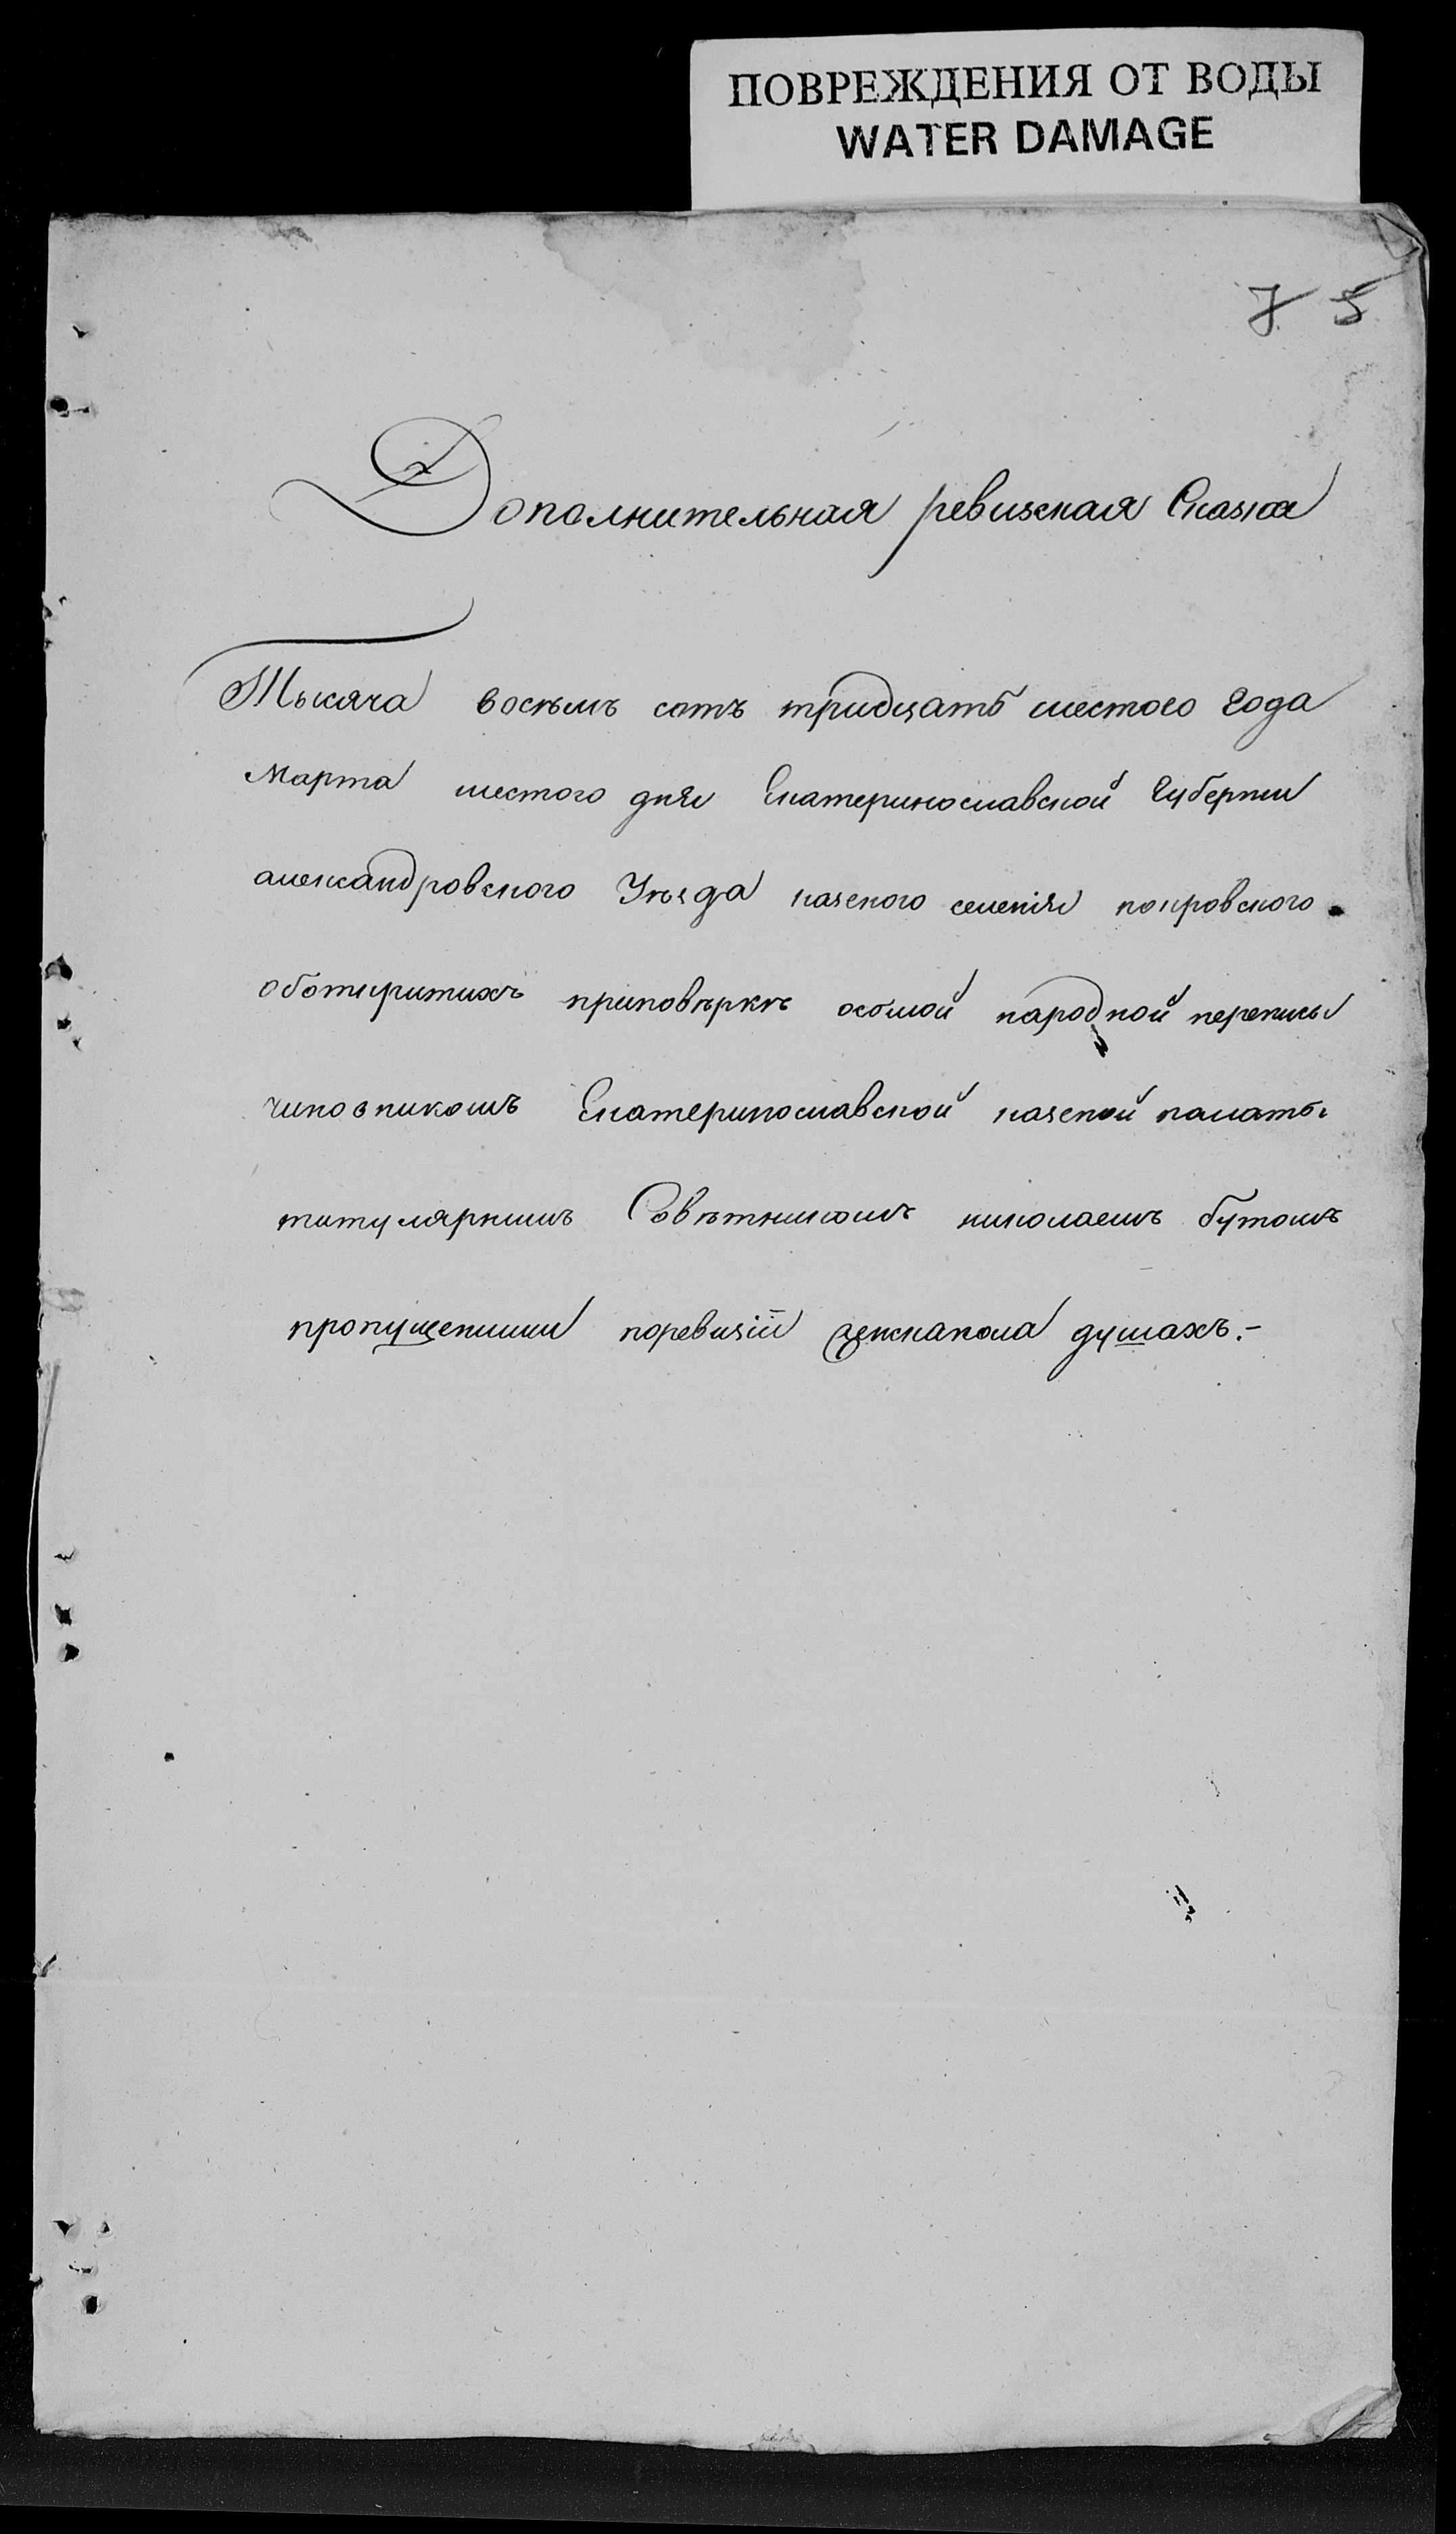 ПОВРЕЖДЕНИЯ ОТ ВОДЫ
WATER DAMAGE
7 5
Дополнительная ревизская Сказка
Тысяча восьмъ сотъ тридцать шестого года
Марта шестого дня Екатеринославской Губернии
александровского Уѣзда казеного селенія покровского
оботкрытихъ приповѣркѣ осьмой народной переписы
чиновникомъ Екатеринославской казеной палаты
титулярнимъ Совѣтникомъ николаемъ бутомъ
пропущенними поревизіи душахъ.-